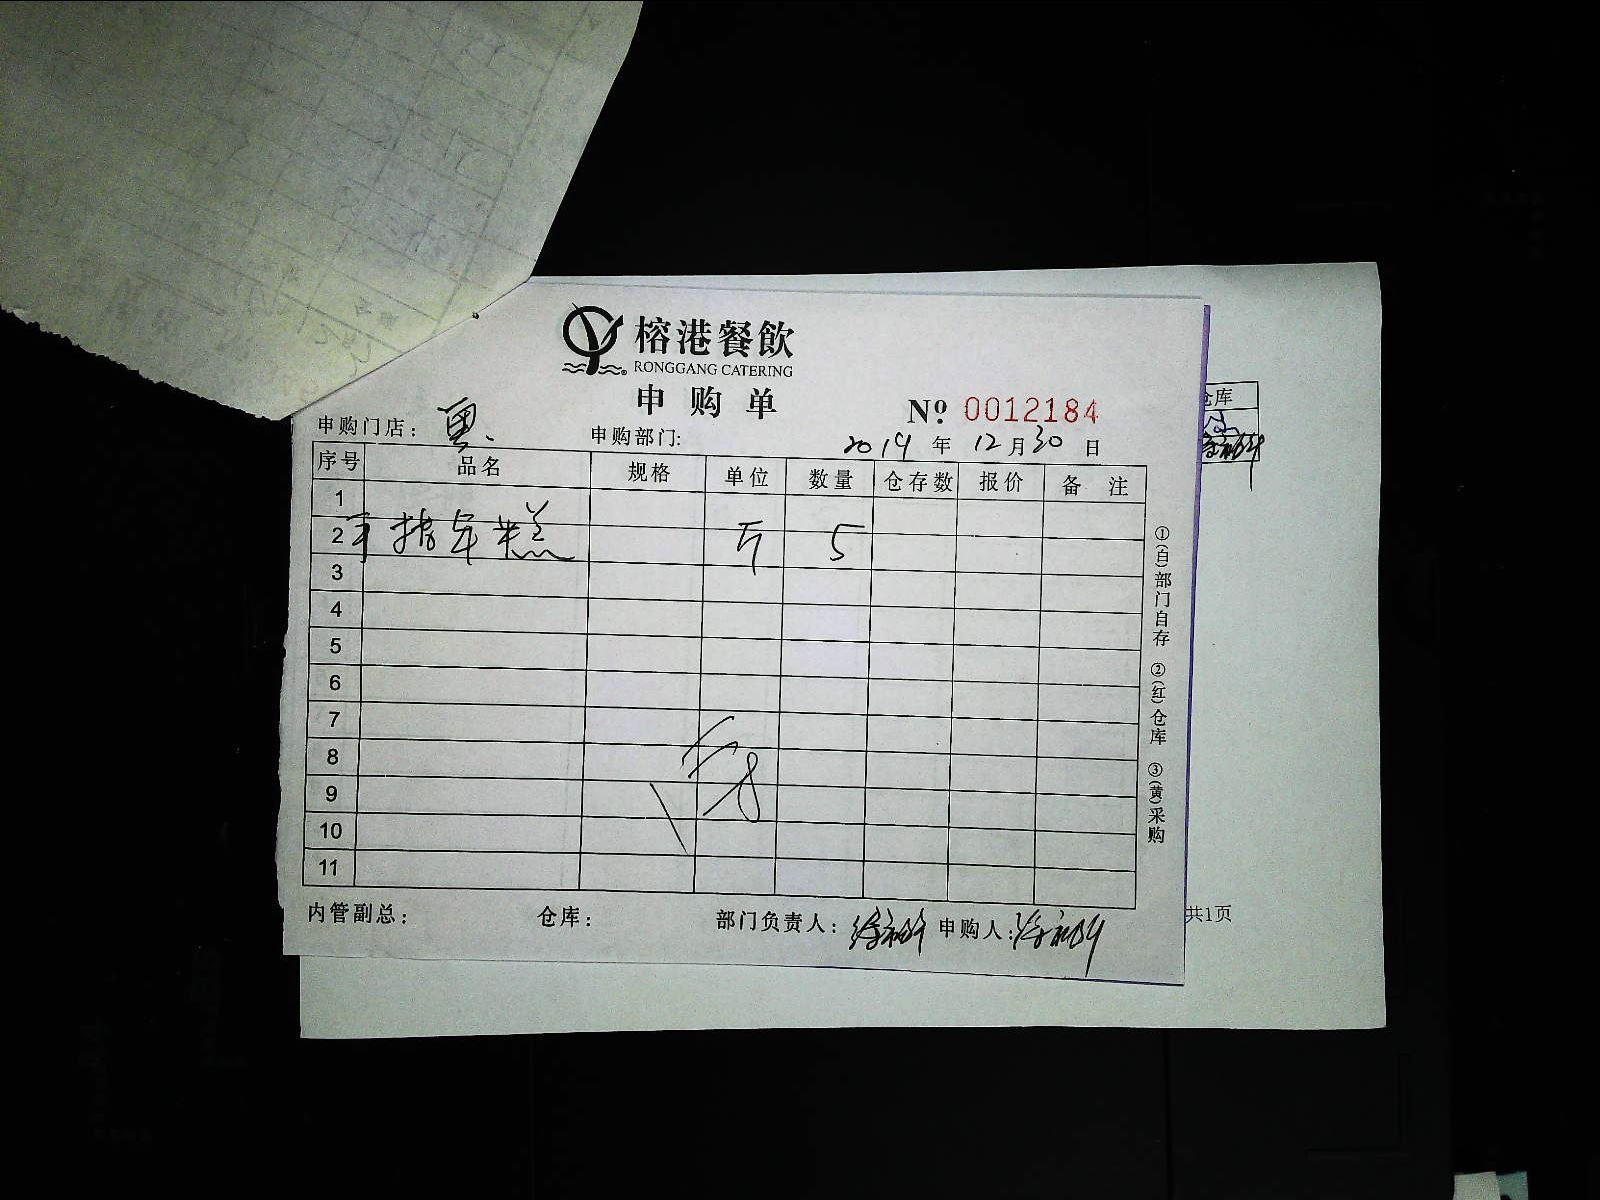 榕港餐飲
RONGGANG CATERING
申购单
№ 0012184
申购门店： 粤 申购部门: 2019 年 12 月 30 日
序号 品名 规格 单位 数量 仓存数 报价 备 注
1
2 手指年糕 斤 5
3
4
5
6
7
8
9
10
11
内管副总： 仓库： 部门负责人： 申购人：
①(白)部门自存 ②(红)仓库 ③(黄)采购
仓库
共1页